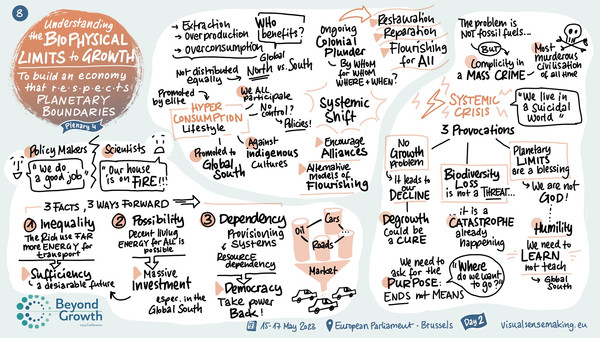 8
Understanding
the BIOPHYSICAL
LIMITS to GROWTH
To build an economy
that r·e·s·p·e·c·t·s
PLANETARY
BOUNDARIES
Plenary 4
Policy Makers
"We do
a good job"
Scientists
"Our house
is on FIRE!!!"
→ Extraction
→ overproduction
→ overconsumption
WHO
benefits?
Global
North vs. South
Not distributed
equally
Ongoing
Colonial
Plunder
→ By WHOM
for WHOM
WHERE + WHEN?
→ Restauration
→ Reparation
→ Flourishing
for All
Promoted
by elite
HYPER
CONSUMPTION
Lifestyle
We ALL
participate
No
control?
→ Policies!
Promoted to
Global
South
Against
Indigenous
Cultures
Systemic
Shift
Encourage
Alliances
Alternative
Models of
Flourishing
The problem is
NOT fossil fuels...
BUT
Complicity in
a MASS CRIME
Most
murderous
civilisation
of all time
SYSTEMIC
CRISIS
"We live in
a Suicidal
World"
3 Provocations
No
Growth
problem
It leads to
our DECLINE
Degrowth
Could be
a CURE
Biodiversity
LOSS
is not a THREAT...
...it is a
CATASTROPHE
already
happening
Planetary
LIMITS
are a blessing
We are not
GOD!
Humility
We need to
LEARN
not teach
→ Global
South
We need to
ask for the
PURPOSE:
ENDS not MEANS
"Where
do we want
to go?"
3 FACTS, 3 WAYS FORWARD
1 Inequality
The Rich use FAR
more ENERGY for
transport
Sufficiency
a desirable future
2 Possibility
Decent living
ENERGY for ALL is
possible
Massive
Investment
espec. in the
Global South
3 Dependency
Provisioning
Systems
Resource
dependency
Democracy
Take power
Back!
Oil
Cars
Roads
Market
Beyond
Growth
15-17 May 2023
European Parliament · Brussels
Day 2
visualsensemaking.eu